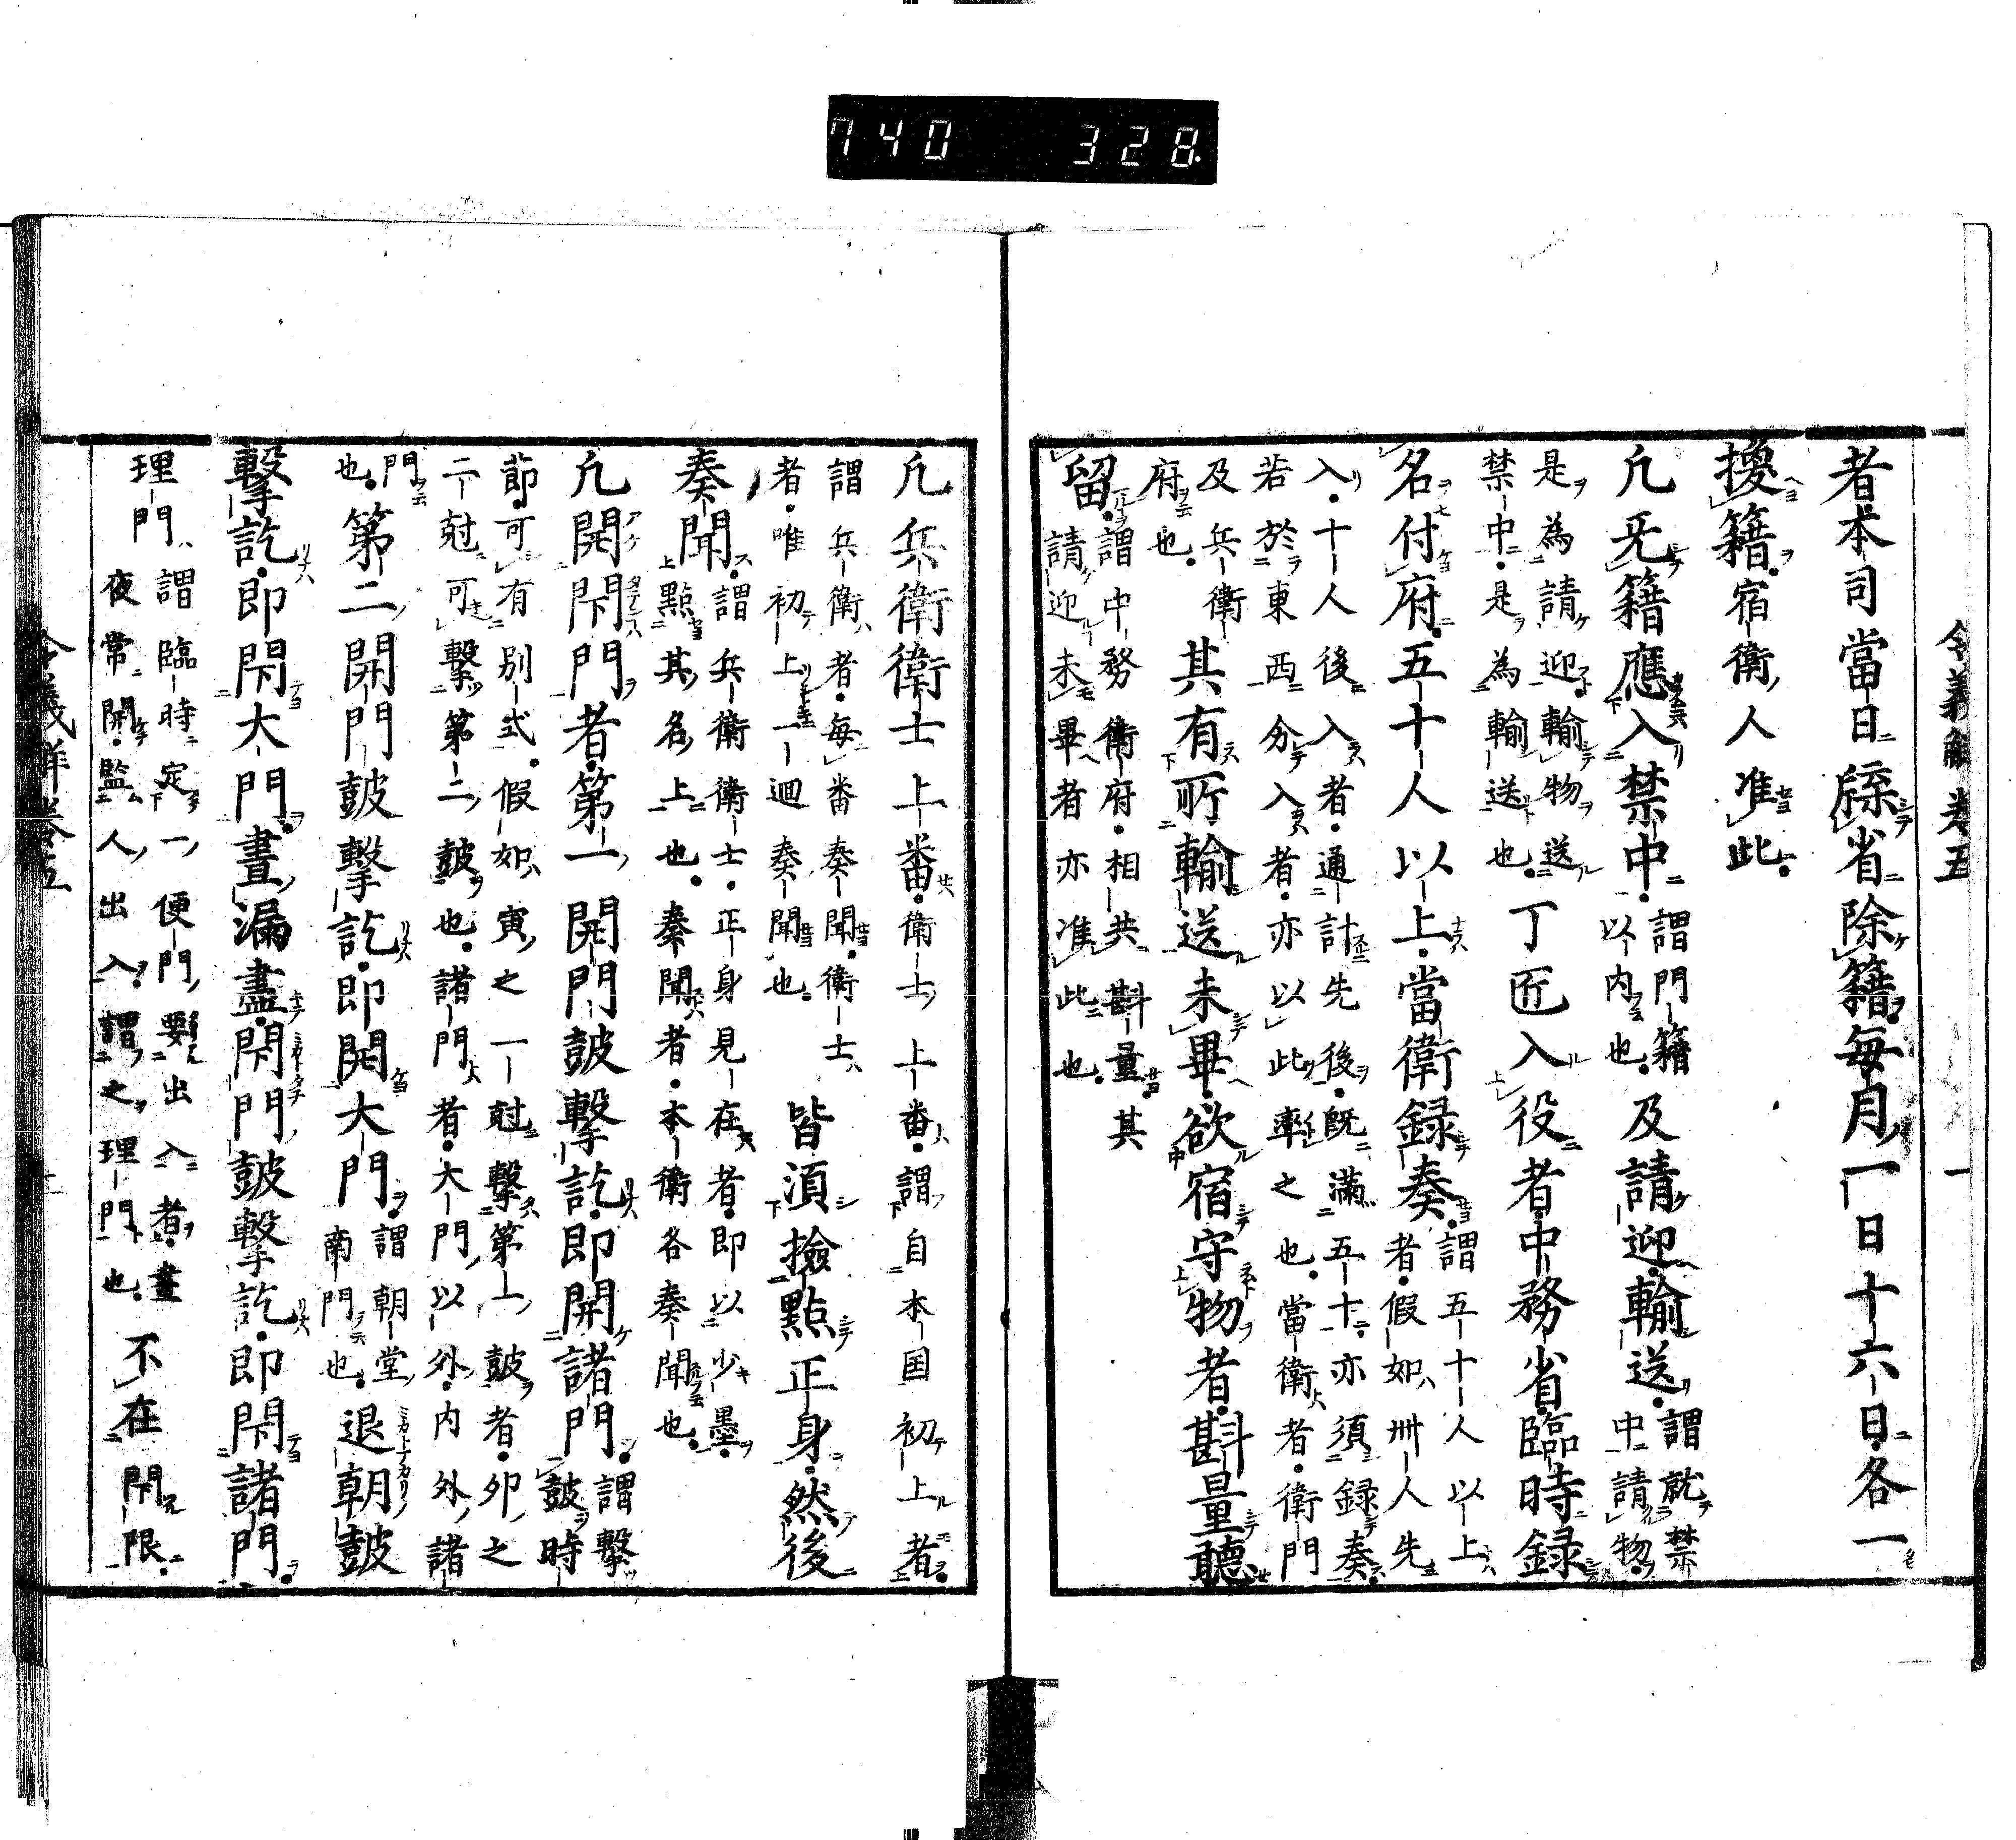 740 328
令義解卷五 一
者本司當日牒省除籍毎月一日十六日各一
換籍宿衛人准此
凢无籍應入禁中謂門籍
以内也及請迎輸送謂就禁
中請物
是為請迎輸物送
禁中是為輸送也丁匠入役者中務省臨時録
名付府五十人以上當衛録奏謂五十人以上
者假如卅人先
入十人後入者通計先後既滿五十亦須録奏
若於東西分入者亦以此率之也當衛者衛門
及兵衛
府也其有所輸送未畢欲宿守物者斟量聽
留謂中務衛府相共斟量其
請迎未畢者亦准此也
凢兵衛衛士上番衛士上番謂自本国初上者
謂兵衛者毎番奏聞衛士
者唯初上一迴奏聞也皆須撿點正身然後
奏聞謂兵衛衛士正身見在者即以少墨
點其名上也奏聞者本衛各奏聞也
凢開閇門者第一開門皷擊訖即開諸門謂擊
皷時
節可有別式假如寅之一尅擊第一皷者卯之
二尅可擊第二皷也諸門者大門以外内外諸
門
也第二開門皷擊訖即開大門謂朝堂
南門也退朝皷
擊訖即閇大門晝漏盡閇門皷擊訖即閇諸門
理門謂臨時定一便門要出入者晝
夜常開監人出入謂之理門也不在閇限
令義解卷五